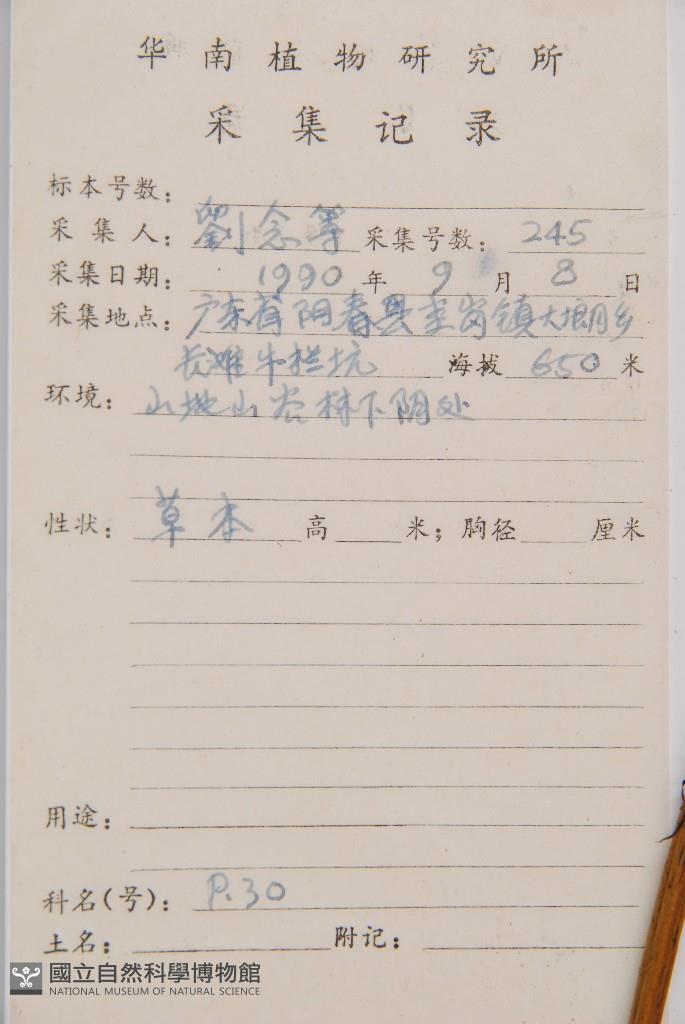 华南植物研究所
采集记录
标本号数：
采集人：劉念等 采集号数：245
采集日期：1990年9月8日
采集地点：广东省阳春县 岗镇大 乡
长滩牛拦坑 海拔650米
环境：山地山谷林下阴处
性状：草本 高 米；胸径 厘米
用途：
科名(号)：P.30
土名： 附记：
國立自然科學博物館
NATIONAL MUSEUM OF NATURAL SCIENCE